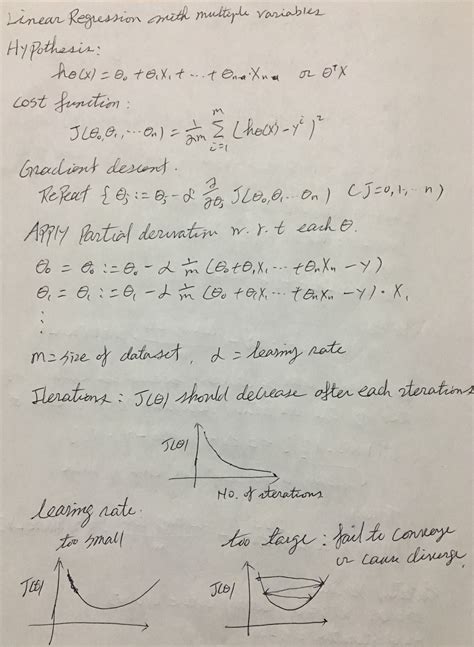 Linear Regression with multiple variables
Hypothesis:
hθ(x) = θ₀ + θ₁X₁ + ... + θₙ·Xₙ or θᵀX
cost function:
J(θ₀,θ₁,...θₙ) = 1/2m Σᵢ₌₁ᵐ (hθ(xⁱ) - yⁱ)²
Gradient descent.
Repeat { θj := θj - α ∂/∂θj J(θ₀,θ₁...θₙ) (J=0,1,...n)
APPly Partial derivation w.r.t each θ.
θ₀ = θ₀ := θ₀ - α 1/m (θ₀+θ₁X₁ ... +θₙXₙ - y)
θ₁ = θ₁ := θ₁ - α 1/m (θ₀ + θ₁X₁ ... +θₙXₙ - y)·X₁
⋮
m = size of dataset, α = learing rate
Iterations: J(θ) should decrease after each iterations
J(θ)
No. of iterations
learing rate.
too small
too large: fail to converge
or cause diverge.
J(θ)
J(θ)